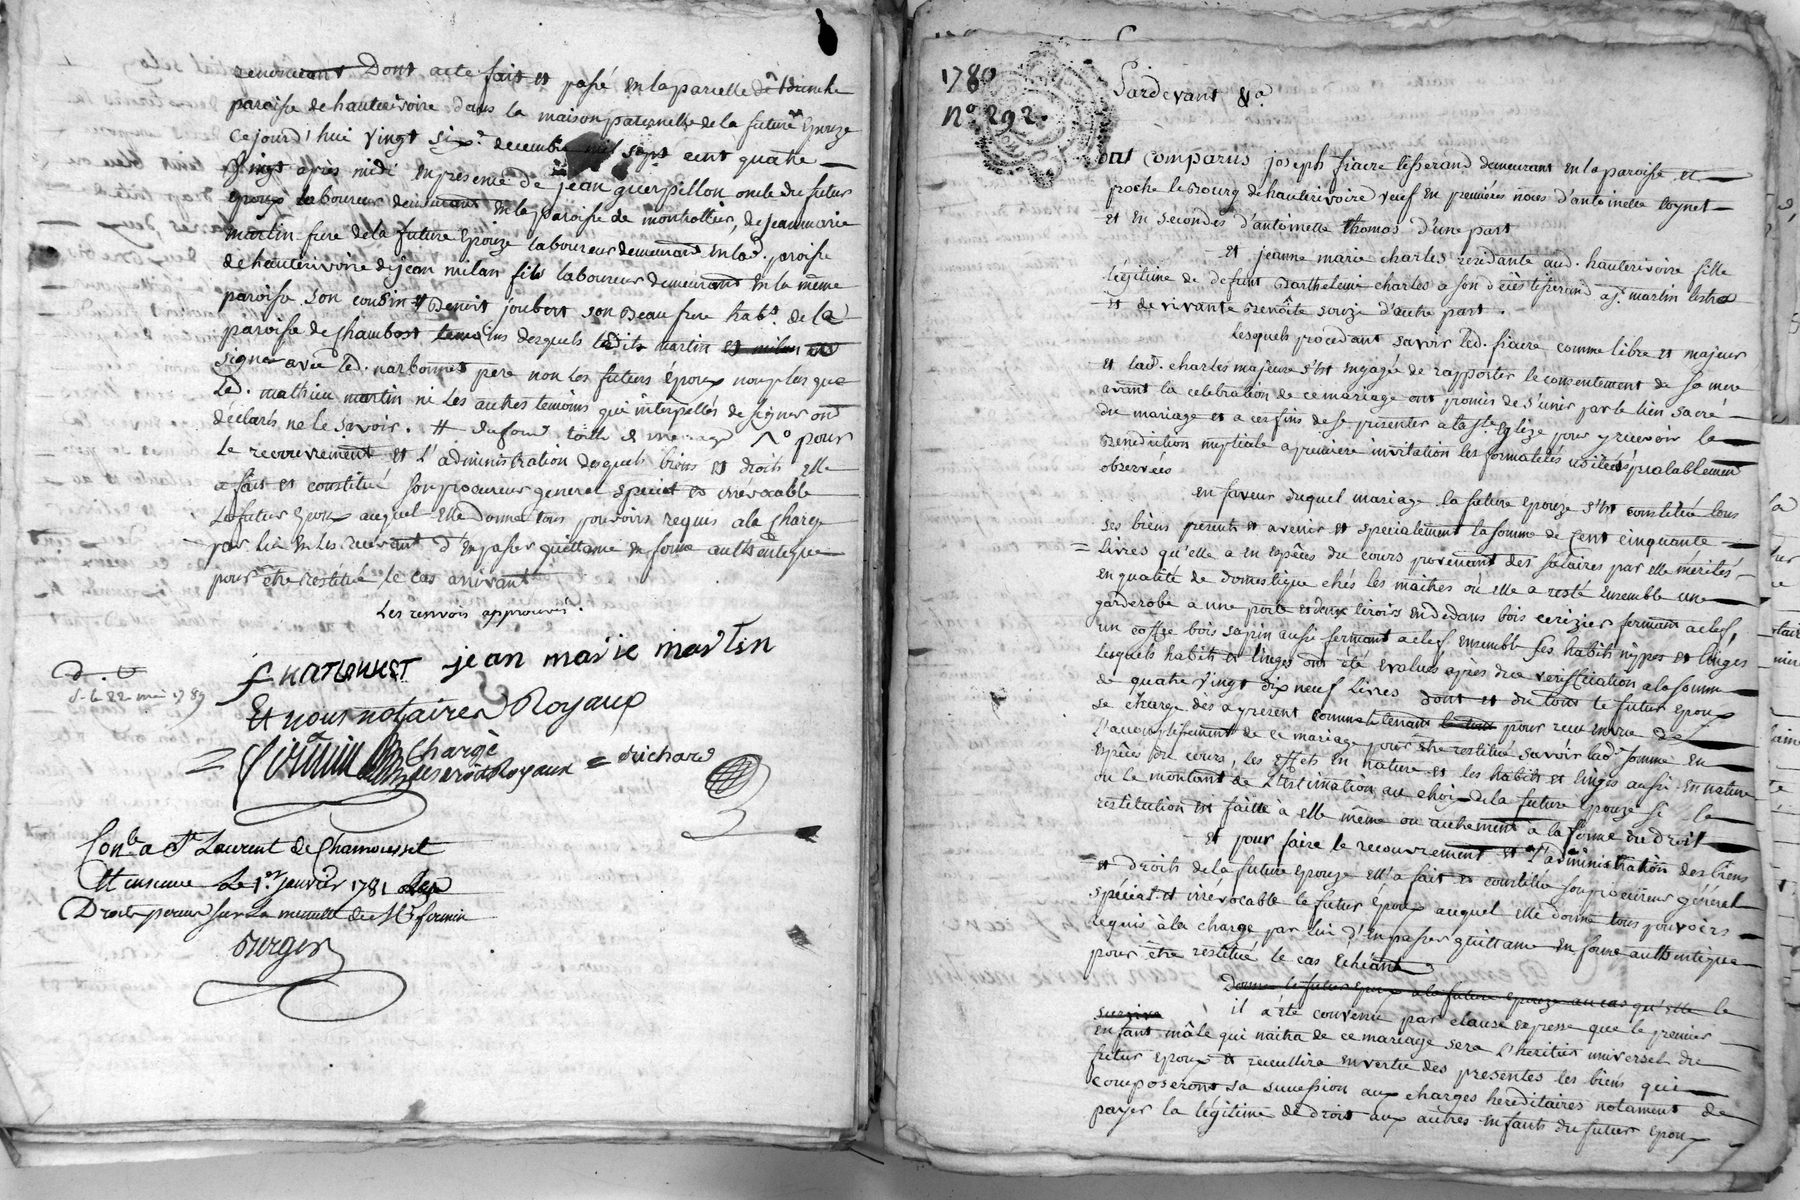 Dont acte fait et passé en la parcelle de
paroisse de hauterivoire dans la maison paternelle de la future Epouze
Cejourd'hui vingt six decembre mil sept cent quatre
vingt après midi en presence de jean guerpillon oncle du futur
Epoux laboureur demeurant en la paroisse de montrottier, de jean marie
martin frere de la future Epouze laboureur demeurant en lad. paroisse
de hauterivoire de jean milan fils laboureur demeurant en la même
paroisse son cousin et Benoit joubert son Beau frere habt. de la
paroisse de Chambost temoins desquels martin
signé avec led. pere non les futurs Epoux non plus que
led. mathieu martin ni les autres temoins qui interpellés de signer ont
declarés ne le savoir. # pour
le recouvrement et l'administration desquels biens et droits elle
a fait et constitué son procureur general special et irrévocable
le futur Epoux auquel elle donne tous pouvoirs requis a la charge
par lui en les recevant d'en passer quittance en forme authentique
pour être restitué le cas arrivant
Les renvois approuvés.
jean marie martin
22 mai 1789
Et nous notaires Royaux
Chargé
Royaux = Richard
Conlé a St Laurent de Chamousset
Le 1er. janvier 1781
Droits percus sur la minutte de Me fermin
Burger
1780
No. 292.
Pardevant &a
Ont comparus joseph fiacre tisserand demeurant en la paroisse et
proche le Bourg de hauterivoire veuf en premieres noces d'antoinette
et en secondes d'antoinette thomas d'une part
et jeanne marie charles residante aud. hauterivoire fille
légitime de defunt Barthelemi charles a son deces tisserand
et de vivante Benoîte d'autre part.
Lesquels procedant savoir led. fiacre comme libre et majeur
et lad. charles majeure s'est engagée de rapporter le consentement de sa mere
avant la celebration de ce mariage ont promis de s'unir par le lien sacré
du mariage et a ces fins de se presenter a la Ste Eglize pour y recevoir la
Benediction nuptiale a premiere invitation les formalités usitées préalablement
observées
En faveur duquel mariage la future Epouze s'est constitué tous
ses biens presents et avenir et specialement la somme de Cent cinquante
= livres qu'elle a en Espèces du cours provenant des salaires par elle mérités
en qualité de domestique chés les maitres où elle a resté ensemble une
garderobe a une porte et deux tiroirs en dedans bois cerizier fermant a clef,
un coffre bois sapin aussi fermant a clef ensemble ses habits nippes et linges
lesquels habits et linges ont été evalués après due verification a la somme
de quatre vingt dix neuf livres dont et du tout le futur Epoux
se charge des a present comme le tenant pour reçu en vue de
l'accomplissement de ce mariage pour être restitué savoir lad. somme en
Espèces du cours, les effets en nature et les habits et linges aussi en nature
ou le montant de l'estimation au choix de la future Epouze si la
restitution est faitte à elle même ou autrement a la forme du droit
et pour faire le recouvrement et l'administration des biens
et droits de la future Epouze elle a fait et constitué son procureur général
special et irrévocable le futur Epoux auquel elle donne tous pouvoirs
requis à la charge par lui d'en passer quittance en forme authentique
pour être restitué le cas Echéant
Donne le futur Epoux a la future Epouze au cas qu'elle le
survive il a été convenu par clause expresse que le premier
enfant mâle qui naitra de ce mariage sera l'heritier universel du
futur Epoux et recueillira en vertu des presentes les biens qui
composeront sa succession aux charges hereditaires notament de
payer la légitime de droit aux autres enfants du futur Epoux